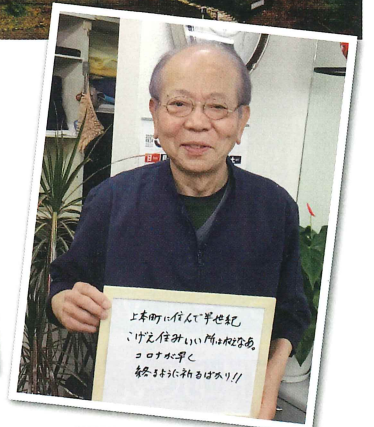 上本町に住んで半世紀
こげえ住みいい所はねえなあ。
コロナが早く
終るように祈るばかり!!